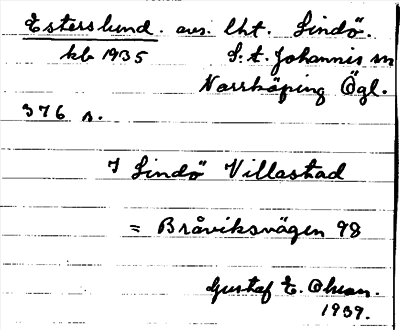 Esterslund. avs. lht. Lindö.
kb 1935 S:t Johannis sn
Norrköping Ögl.
376 s.
I Lindö Villastad
= Bråviksvägen 98
Gustaf E. Ohson.
1939.